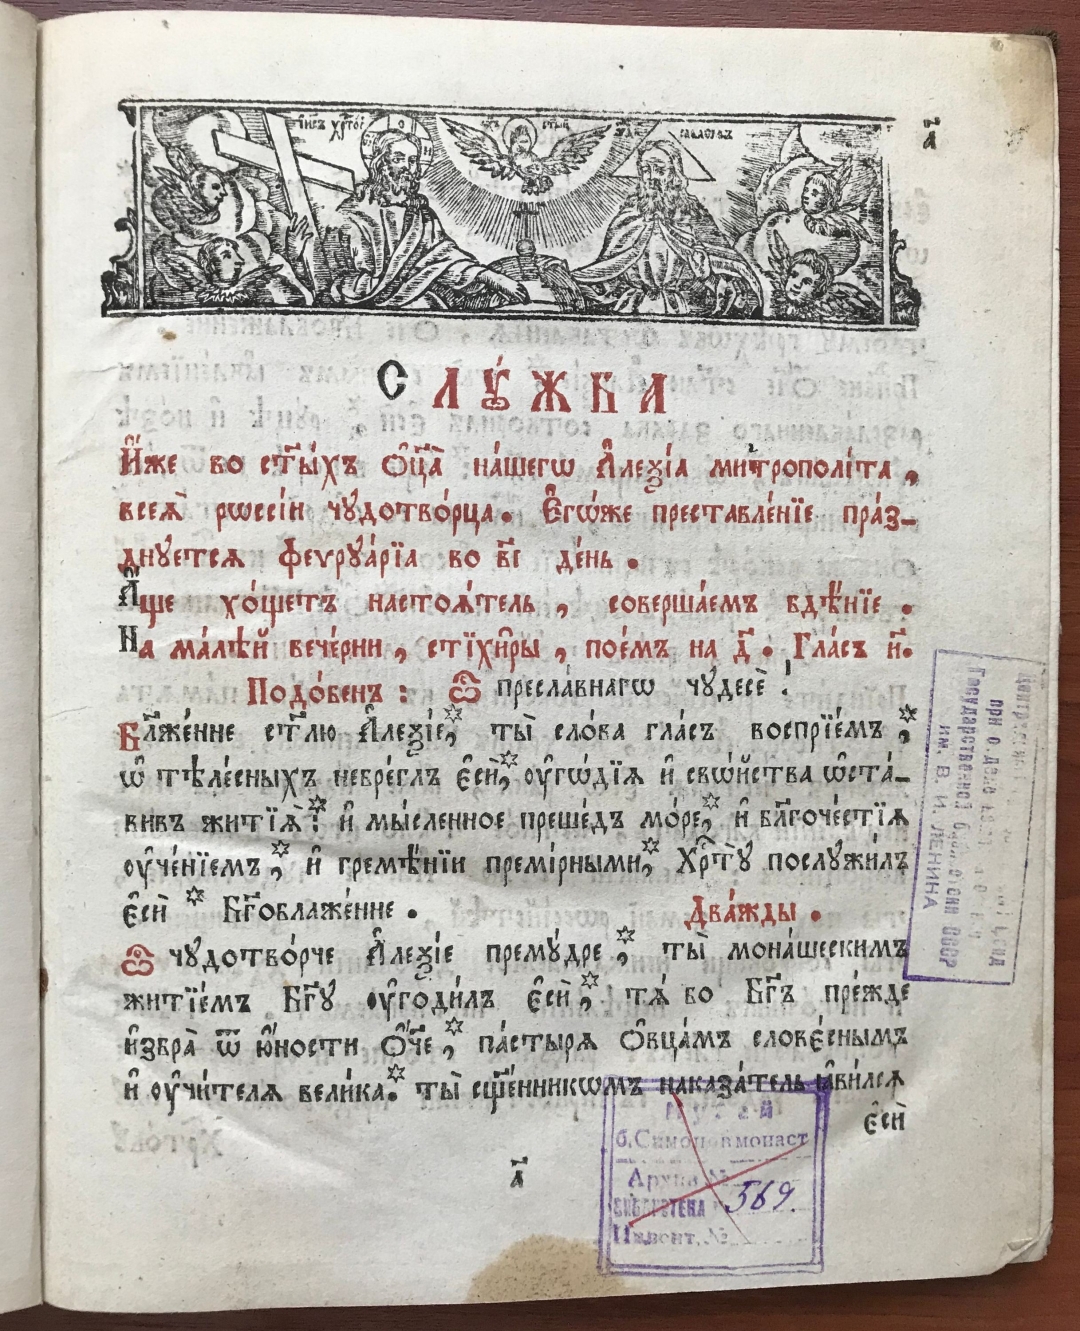 І҆и҃съ хр҇то́съ
О Н
ст҃ы́й
саваѡѳъ
а҃
Слꙋ́жба
И҆́же во ст҃ы́хъ ѻ҆ц҃а̀ на́шегѡ А҆леѯі́а митрополі́та ,
всеѧ̀ рѡссі́и чꙋдотво́рца . Е҆гѡ́же преставле́нїе пра́з-
днꙋетсѧ феѵрꙋа́рїа во в҃і де́нь .
А҆́ще хо́щетъ настоѧ́тель , соверша́емъ бдѣ́нїе .
На ма́лѣй вече́рни , стїхи̑ры , пое́мъ на д҃ . Гла́съ и҃ .
Подо́бенъ : Ѽ пресла́внагѡ чꙋдесѐ !
Бл҃же́нне ст҃лю А҆леѯі́е , * ты̀ сло́ва гла́съ воспрїе́мъ , *
ѡ҆ тѣле́сныхъ небре́глъ є҆сѝ , * ᲂу҆гѡ́дїѧ и҆ сво́йства ѡ҆ста́-
вивъ житїѧ̀ : * и҆ мы́сленное преше́дъ мо́ре , * и҆ бл҃гоче́стїѧ
ᲂу҆че́нїемъ , * и҆ гремѣ́нїи премі́рными , * Хрⷭ҇тꙋ̀ послꙋжи́лъ
є҆сѝ * Бг҃облаже́нне . Два́жды .
Ѽ чꙋдотво́рче А҆леѯі́е премꙋ́дре , * ты̀ мона́шескимъ
житїе́мъ Бг҃ꙋ ᲂу҆годи́лъ є҆сѝ , * тѧ́ бо Бг҃ъ пре́жде
и҆збра̀ ѿ ю҆́ности Ѻ҆́ч҃е , * па́стырѧ Ѻ҆вца́мъ слове́снымъ
и҆ ᲂу҆чи́телѧ вели́ка . * ты̀ сщ҃е́нникѡмъ наказа́тель ꙗ҆ви́лсѧ
є҆сѝ
а҃
Государственной библиотеки СССР
им. В. И. ЛЕНИНА
Музей
б. Симонов монаст
Архив №
БИБЛИОТЕКА 569.
Инвент. №